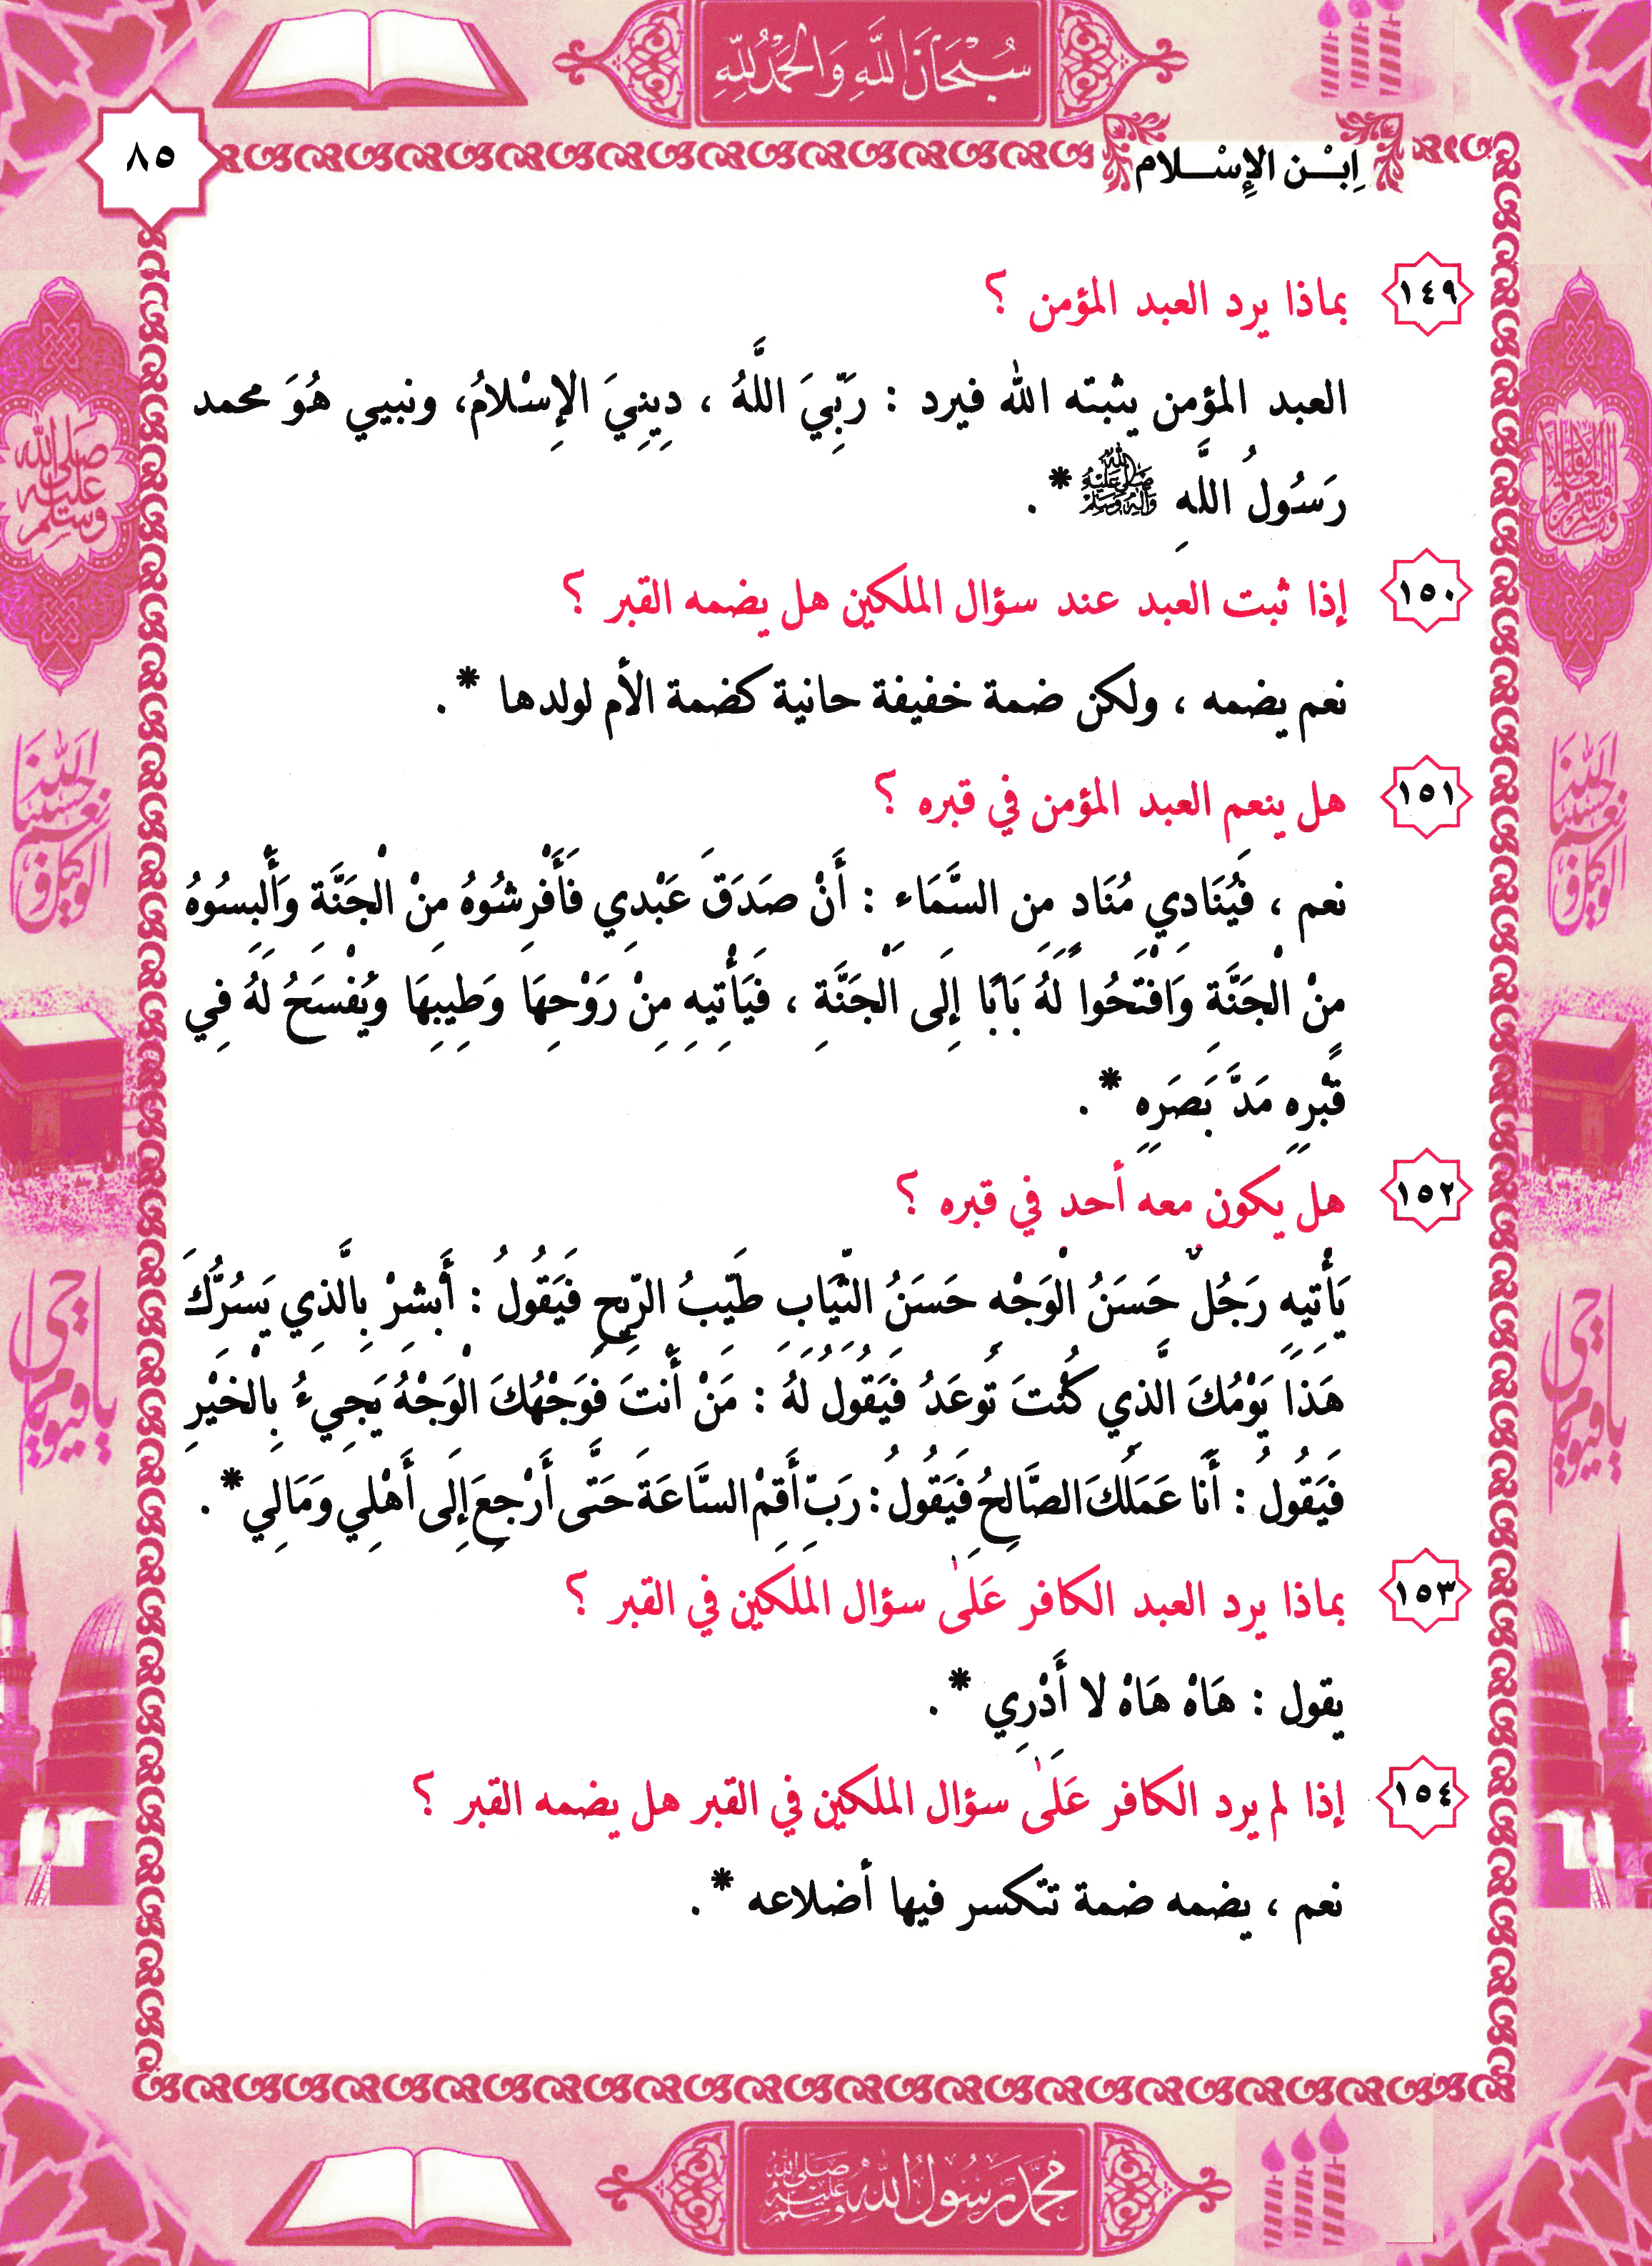 سُبْحَانَ اللَّهِ وَالْحَمْدُ لِلَّهِ
اِبْـن الإِسْـلام
٨٥
١٤٩ بماذا يرد العبد المؤمن ؟
العبد المؤمن يثبته الله فيرد : رَبِّيَ اللَّهُ ، دِينِيَ الإِسْلامُ، ونبيي هُوَ محمد
رَسُولُ اللَّهِ ﷺ * .
١٥٠ إذا ثبت العبد عند سؤال الملكين هل يضمه القبر ؟
نعم يضمه ، ولكن ضمة خفيفة حانية كضمة الأم لولدها * .
١٥١ هل ينعم العبد المؤمن في قبره ؟
نعم ، فَيُنَادِي مُنَادٍ مِن السَّمَاءِ : أَنْ صَدَقَ عَبْدِي فَأَفْرِشُوهُ مِنْ الْجَنَّةِ وَأَلْبِسُوهُ
مِنْ الْجَنَّةِ وَافْتَحُوا لَهُ بَابًا إِلَى الْجَنَّةِ ، فَيَأْتِيهِ مِنْ رَوْحِهَا وَطِيبِهَا وَيُفْسَحُ لَهُ فِي
قَبْرِهِ مَدَّ بَصَرِهِ * .
١٥٢ هل يكون معه أحد في قبره ؟
يَأْتِيهِ رَجُلٌ حَسَنُ الْوَجْهِ حَسَنُ الثِّيَابِ طَيِّبُ الرِّيحِ فَيَقُولُ : أَبْشِرْ بِالَّذِي يَسُرُّكَ
هَذَا يَوْمُكَ الَّذِي كُنْتَ تُوعَدُ فَيَقُولُ لَهُ : مَنْ أَنتَ فَوَجْهُكَ الْوَجْهُ يَجِيءُ بِالْخَيْرِ
فَيَقُولُ : أَنَا عَمَلُكَ الصَّالِحُ فَيَقُولُ : رَبِّ أَقِمْ السَّاعَةَ حَتَّى أَرْجِعَ إِلَى أَهْلِي وَمَالِي * .
١٥٣ بماذا يرد العبد الكافر عَلَىٰ سؤال الملكين في القبر ؟
يقول : هَاهْ هَاهْ لا أَدْرِي * .
١٥٤ إذا لم يرد الكافر عَلَىٰ سؤال الملكين في القبر هل يضمه القبر ؟
نعم ، يضمه ضمة تتكسر فيها أضلاعه * .
صلى الله عليه وسلم
حسبنا الله ونعم الوكيل
حسبنا الله ونعم الوكيل
يا حي يا قيوم
يا حي يا قيوم
محمد رسول الله صلى الله عليه وسلم